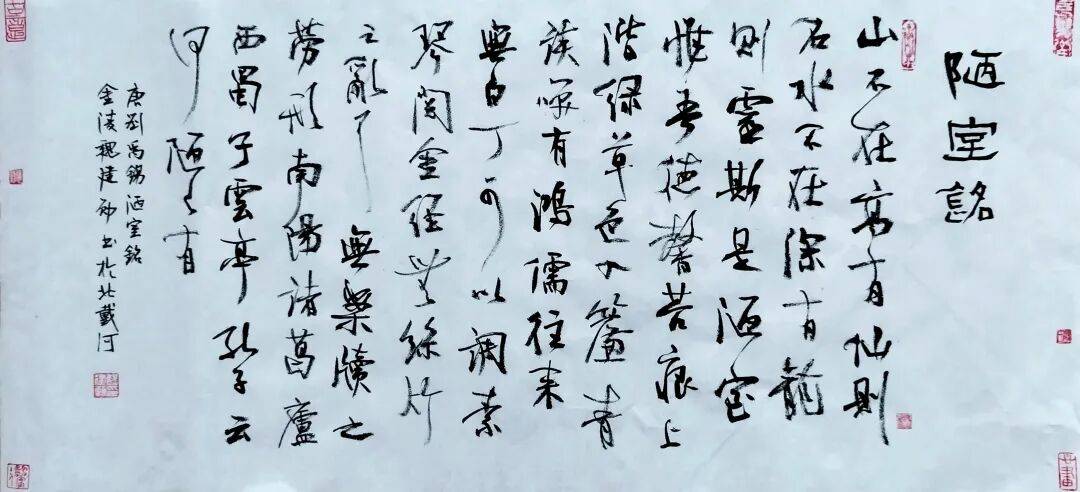 陋室銘
山不在高有仙則
名水不在深有龍
則靈斯是陋室
惟吾德馨苔痕上
階綠草色入簾青
談笑有鴻儒往來
無白丁可以調素
琴閱金經無絲竹
之亂耳無案牘之
勞形南陽諸葛廬
西蜀子雲亭孔子云
何陋之有
唐劉禹錫陋室銘
金陵魏建书於北戴河